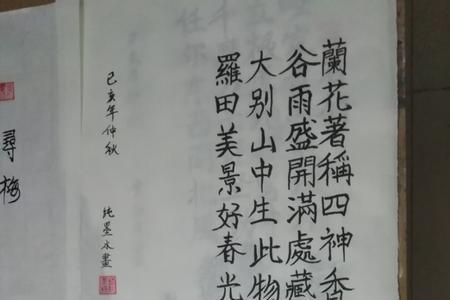 蘭花著稱四神香
谷雨盛開滿處藏
大别山中生此物
羅田美景好春光
己亥年仲秋
純墨水畫
尋梅